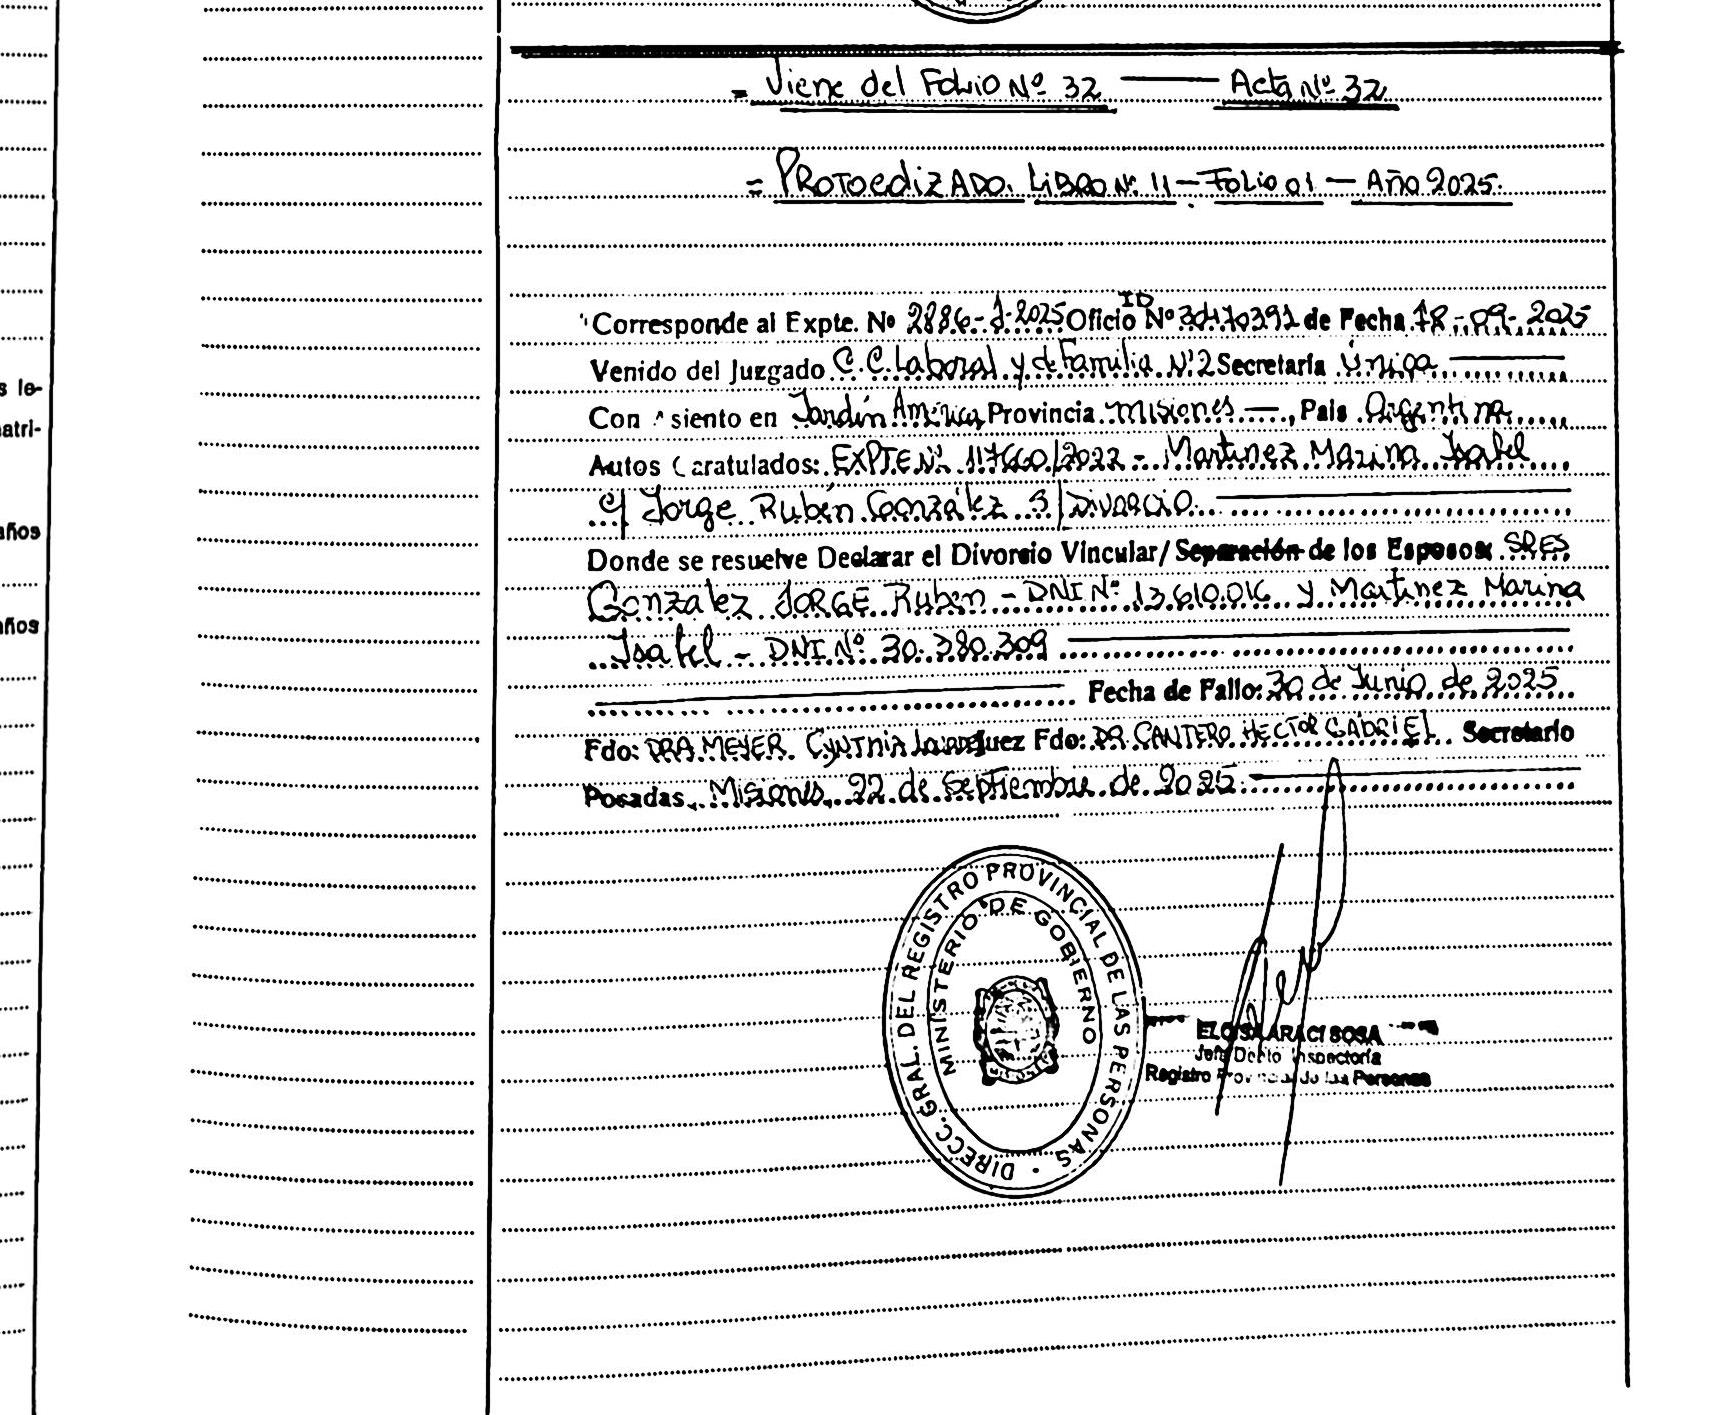 = Viene del Folio Nº 32 — Acta Nº 32
= Protocolizado. Libro Nº 11 — Folio 01 — Año 2025.
Corresponde al Expte. Nº 2886-J-2025 Oficio ID Nº 30170391 de Fecha 18-09-2025
Venido del Juzgado C.C. Laboral y de Familia Nº 2 Secretaría Única
Con Asiento en Jardín América Provincia Misiones —, País Argentina
Autos Caratulados: EXPTE Nº 117660/2022 - Martinez Marina Isabel
c/ Jorge Rubén González S/Divorcio
Donde se resuelve Declarar el Divorcio Vincular/Separación de los Esposos: SRES
Gonzalez JORGE Ruben - DNI Nº 13.610.016 y Martinez Marina
Isabel - DNI Nº 30.380.309
Fecha de Fallo: 30 de Junio de 2025
Fdo: DRA MEYER Cynthia Lourdes Juez Fdo: DR. CANTERO HECTOR GABRIEL Secretario
Posadas, Misiones, 22 de Septiembre de 2025
DIRECC. GRAL. DEL REGISTRO PROVINCIAL DE LAS PERSONAS
MINISTERIO DE GOBIERNO
ELOISA ARACI SOSA
Jefa Depto Inspectoría
Registro Provincial de las Personas
s le-
atri-
años
ños